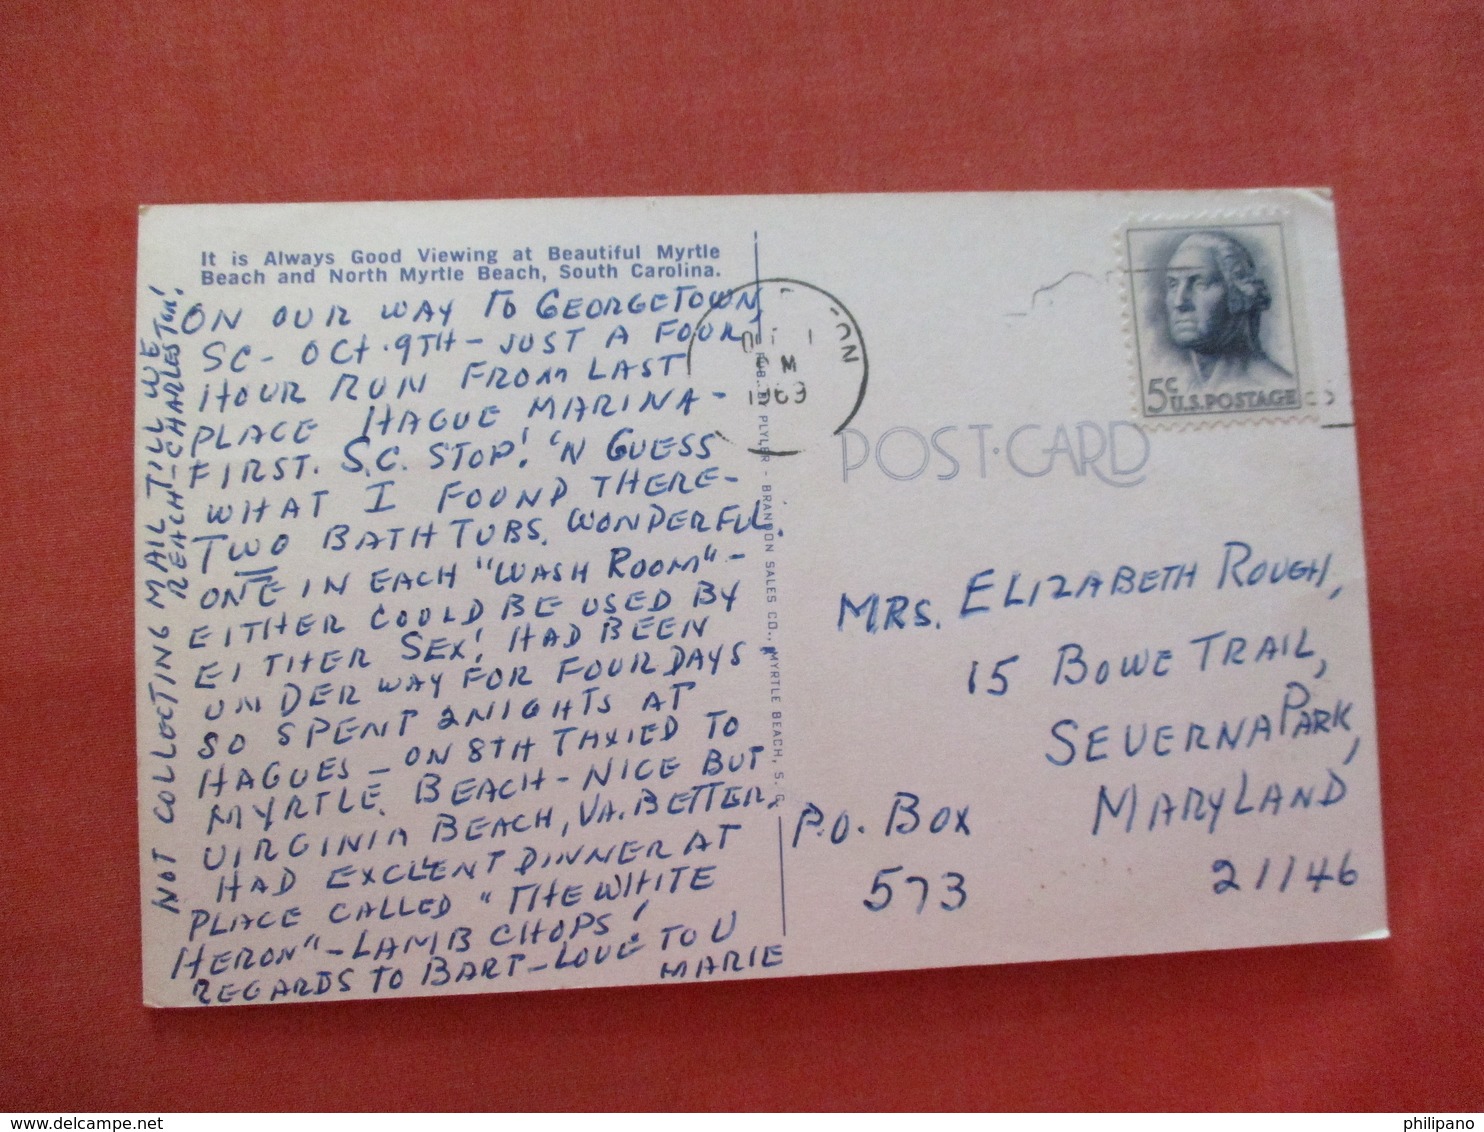 It is Always Good Viewing at Beautiful Myrtle
Beach and North Myrtle Beach, South Carolina.
ON OUR WAY TO GEORGETOWN,
SC- OCT. 9TH - JUST A FOUR
HOUR RUN FROM LAST
PLACE HAGUE MARINA -
FIRST. S.C. STOP! 'N GUESS
WHAT I FOUND THERE-
TWO BATHTUBS. WONDERFUL.
ONE IN EACH "WASH ROOM" -
EITHER COULD BE USED BY
EITHER SEX! HAD BEEN
UNDER WAY FOR FOUR DAYS,
SO SPENT 2 NIGHTS AT
HAGUES - ON 8TH TAXIED TO
MYRTLE BEACH - NICE BUT
VIRGINIA BEACH, VA. BETTER.
HAD EXCLENT DINNER AT
PLACE CALLED "THE WHITE
HERON" - LAMB CHOPS!
REGARDS TO BART - LOVE TO U
MARIE
NOT COLLECTING MAIL TILL WE
REACH - CHARLESTON!
PUB. BY PLYLER - BRANDON SALES CO., MYRTLE BEACH, S. C.
1969
5c
U.S. POSTAGE
POST-CARD
MRS. ELIZABETH ROUGH,
15 BOWE TRAIL,
SEVERNA PARK,
MARYLAND
21146
P.O. BOX
573
philipano